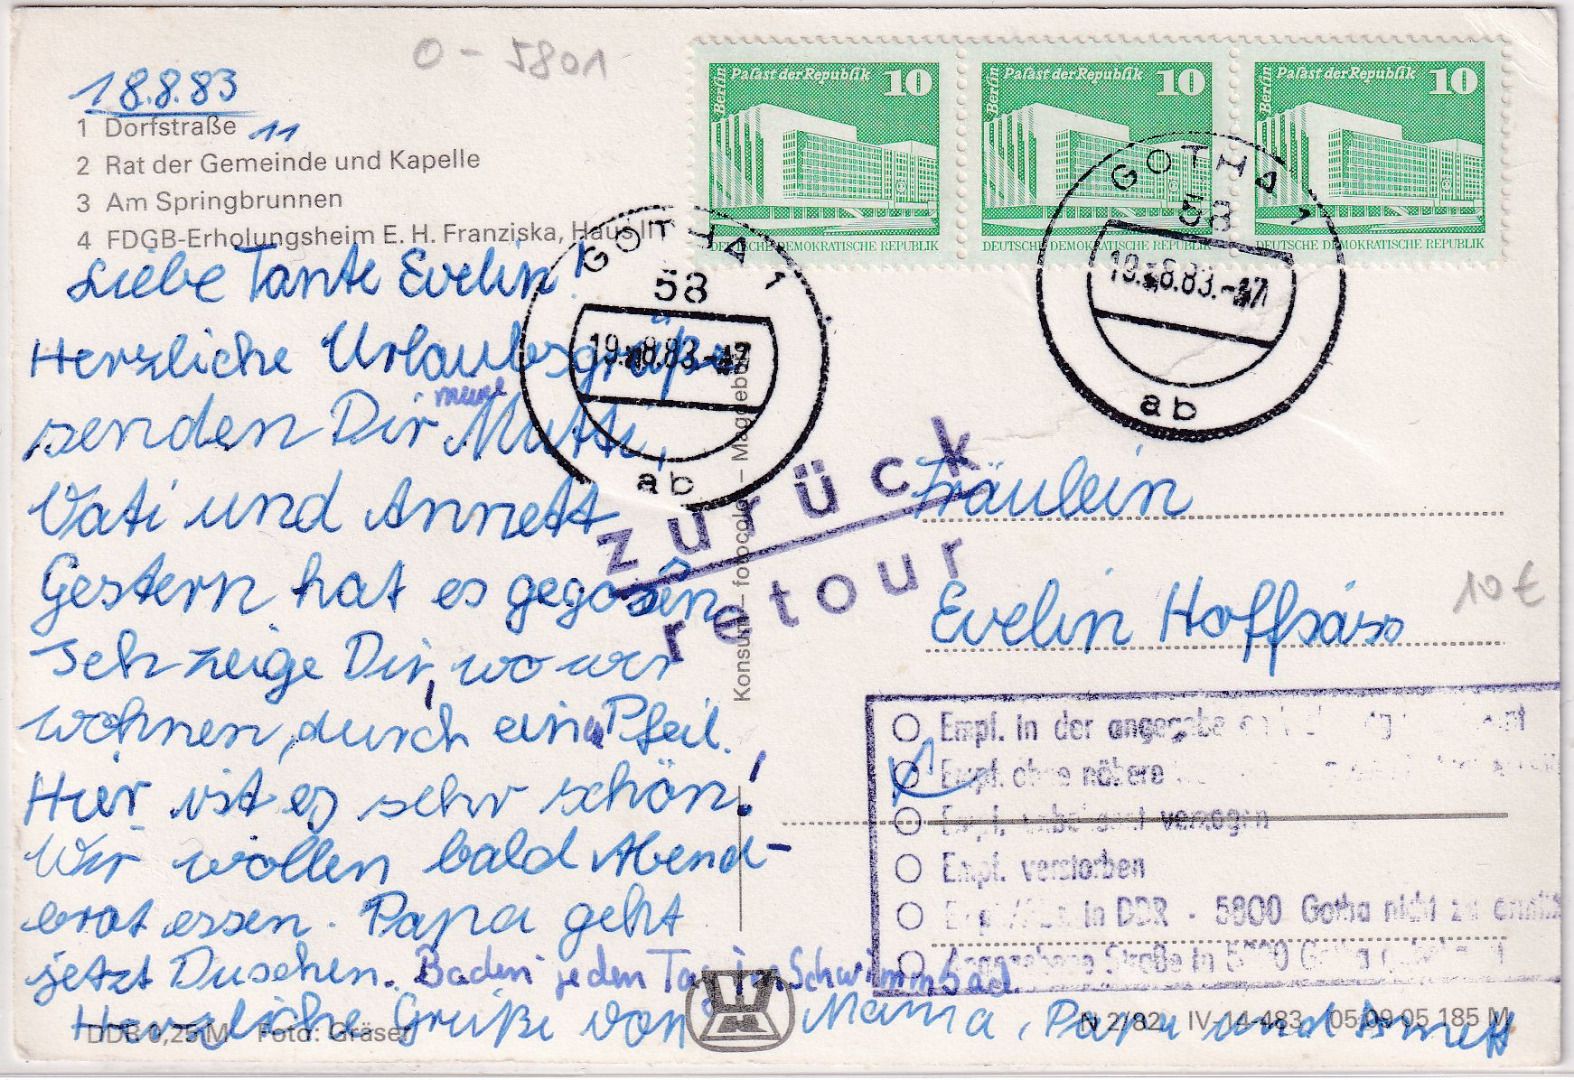 18.8.83
O - 5801
1 Dorfstraße 11
2 Rat der Gemeinde und Kapelle
3 Am Springbrunnen
4 FDGB-Erholungsheim E. H. Franziska, Haus II
Berlin Palast der Republik 10
DEUTSCHE DEMOKRATISCHE REPUBLIK
Berlin Palast der Republik 10
DEUTSCHE DEMOKRATISCHE REPUBLIK
Berlin Palast der Republik 10
DEUTSCHE DEMOKRATISCHE REPUBLIK
GOTHA 1
58
19.-8.83.-17
ab
GOTHA 1
58
19.-8.83.-17
ab
Liebe Tante Evelin!
Herzliche Urlaubsgrüße
senden Dir meine Mutti,
Vati und Annett
Gestern hat es gegosen
Ich zeige Dir, wo wir
wohnen, durch ein Pfeil.
Hier ist es sehr schön!
Wir wollen bald Abend-
brot essen. Papa geht
jetzt Duschen. Baden jeden Tag im Schwimmbad
Herzliche Grüße von Mama, Papa und Annett
zurück
retour
Konsum – fotocolor – Magdeburg
Fräulein
Evelin Hoffsäss
10 €
Empf. in der
Empf. ohne nähere
Empf. verzogen
Empf. verstorben
in DDR - 5800 Gotha nicht zu
Angegebene Straße in 5800 Gotha
DDR 0,25 M Foto: Gräser
N 2/82 IV-14-483 05 09 05 185 M